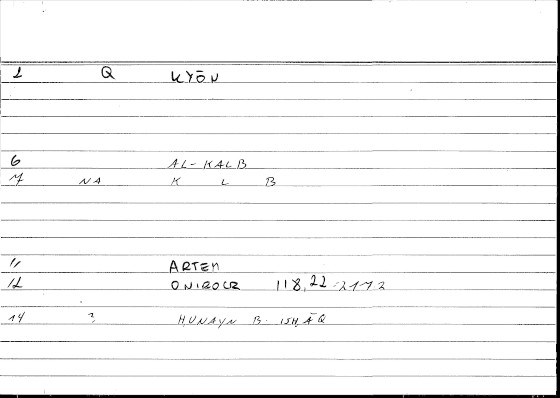 1 Q KYŌN
6 AL-KALB
7 NA K L B
11 ARTEM
12 ONIROCR 118,22
14 ? ḤUNAYN B. ISḤĀQ